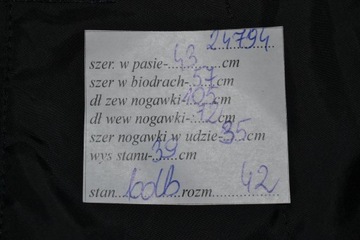 24794
szer. w pasie-...43...cm
szer w biodrach-.57.cm
dl zew nogawki-105cm
dl wew nogawki-.72cm
szer nogawki w udzie-35cm
wys stanu-39...cm
stan..bdb..rozm....42....